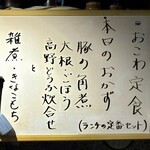 おこわ定食
(ランチの定番セット)
本日のおかず
豚の角煮
大根、ごぼう
高野どうふ炊合せ
と
雑煮・きなこもち